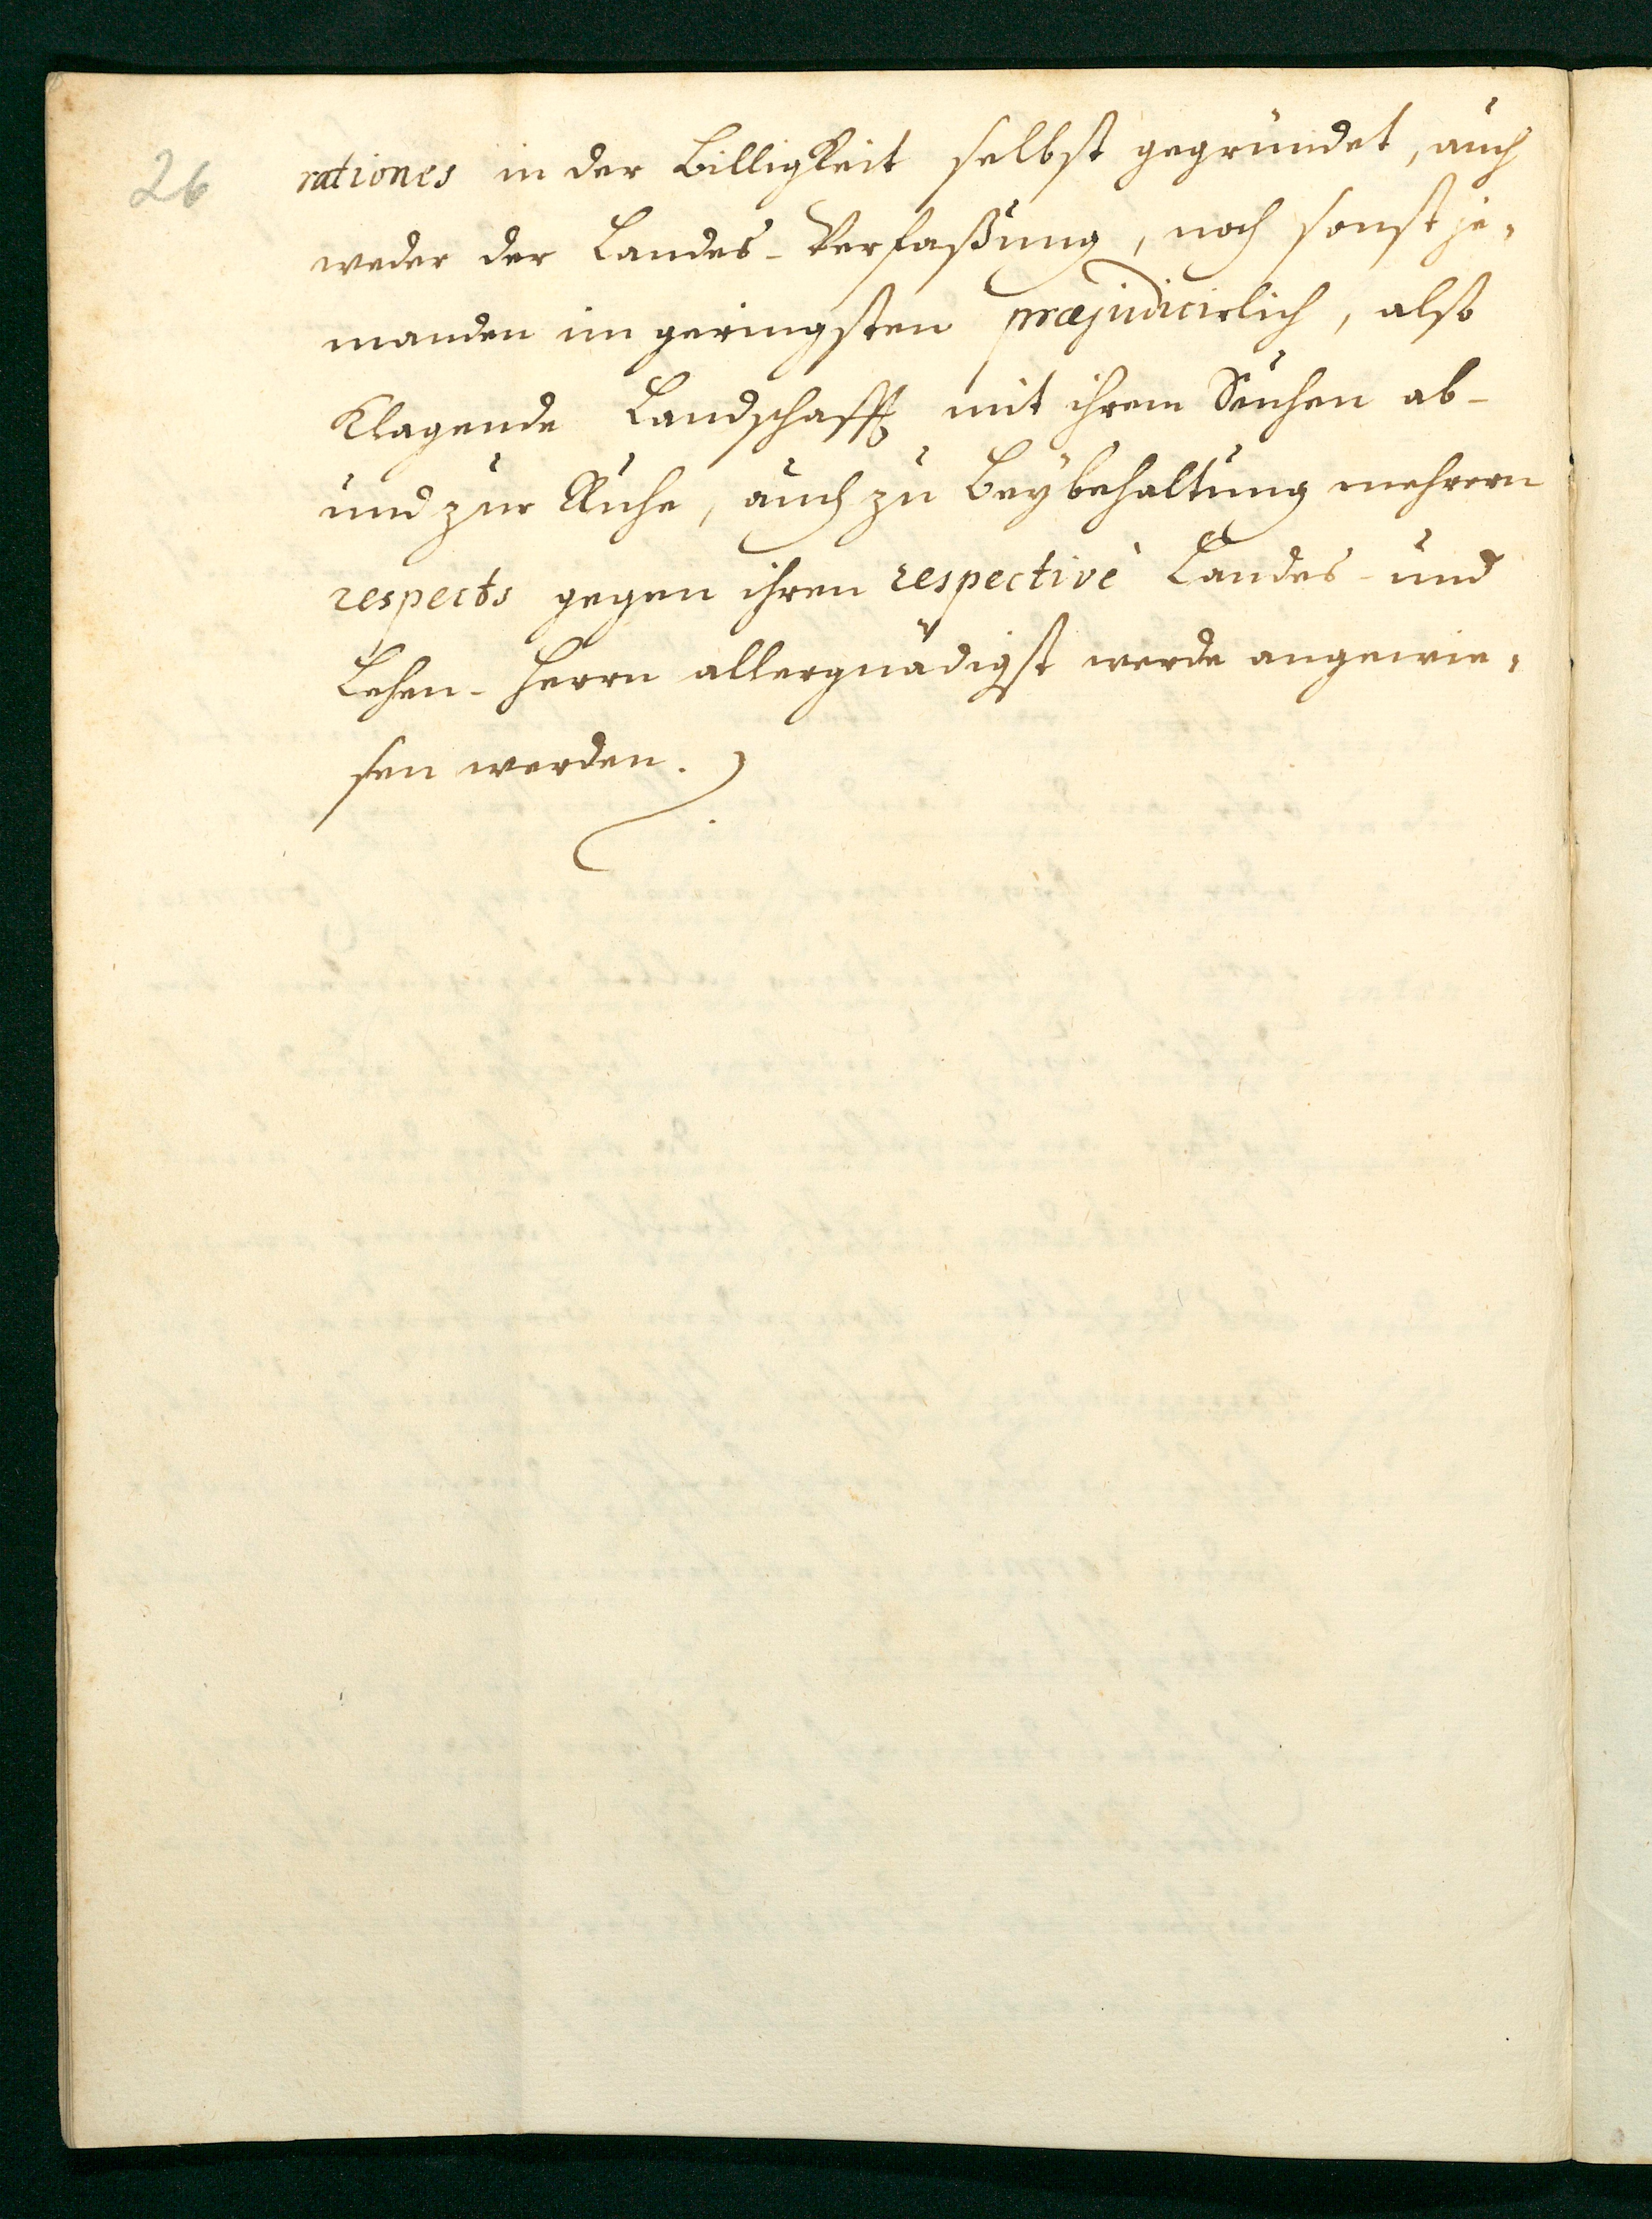 26
rationes in der Billigkeit selbst gegründet, auch
weder der Landes-Verfaßung, noch sonst je-
manden im geringsten præjudicirlich, also
Klagende Landschafft mit ihrem Suchen ab-
und zur Ruhe, auch zu Beybehaltung mehrern
respects gegen ihren respectivè Landes- und
Lehen-Herrn allergnädigst werde angewie-
sen werden.